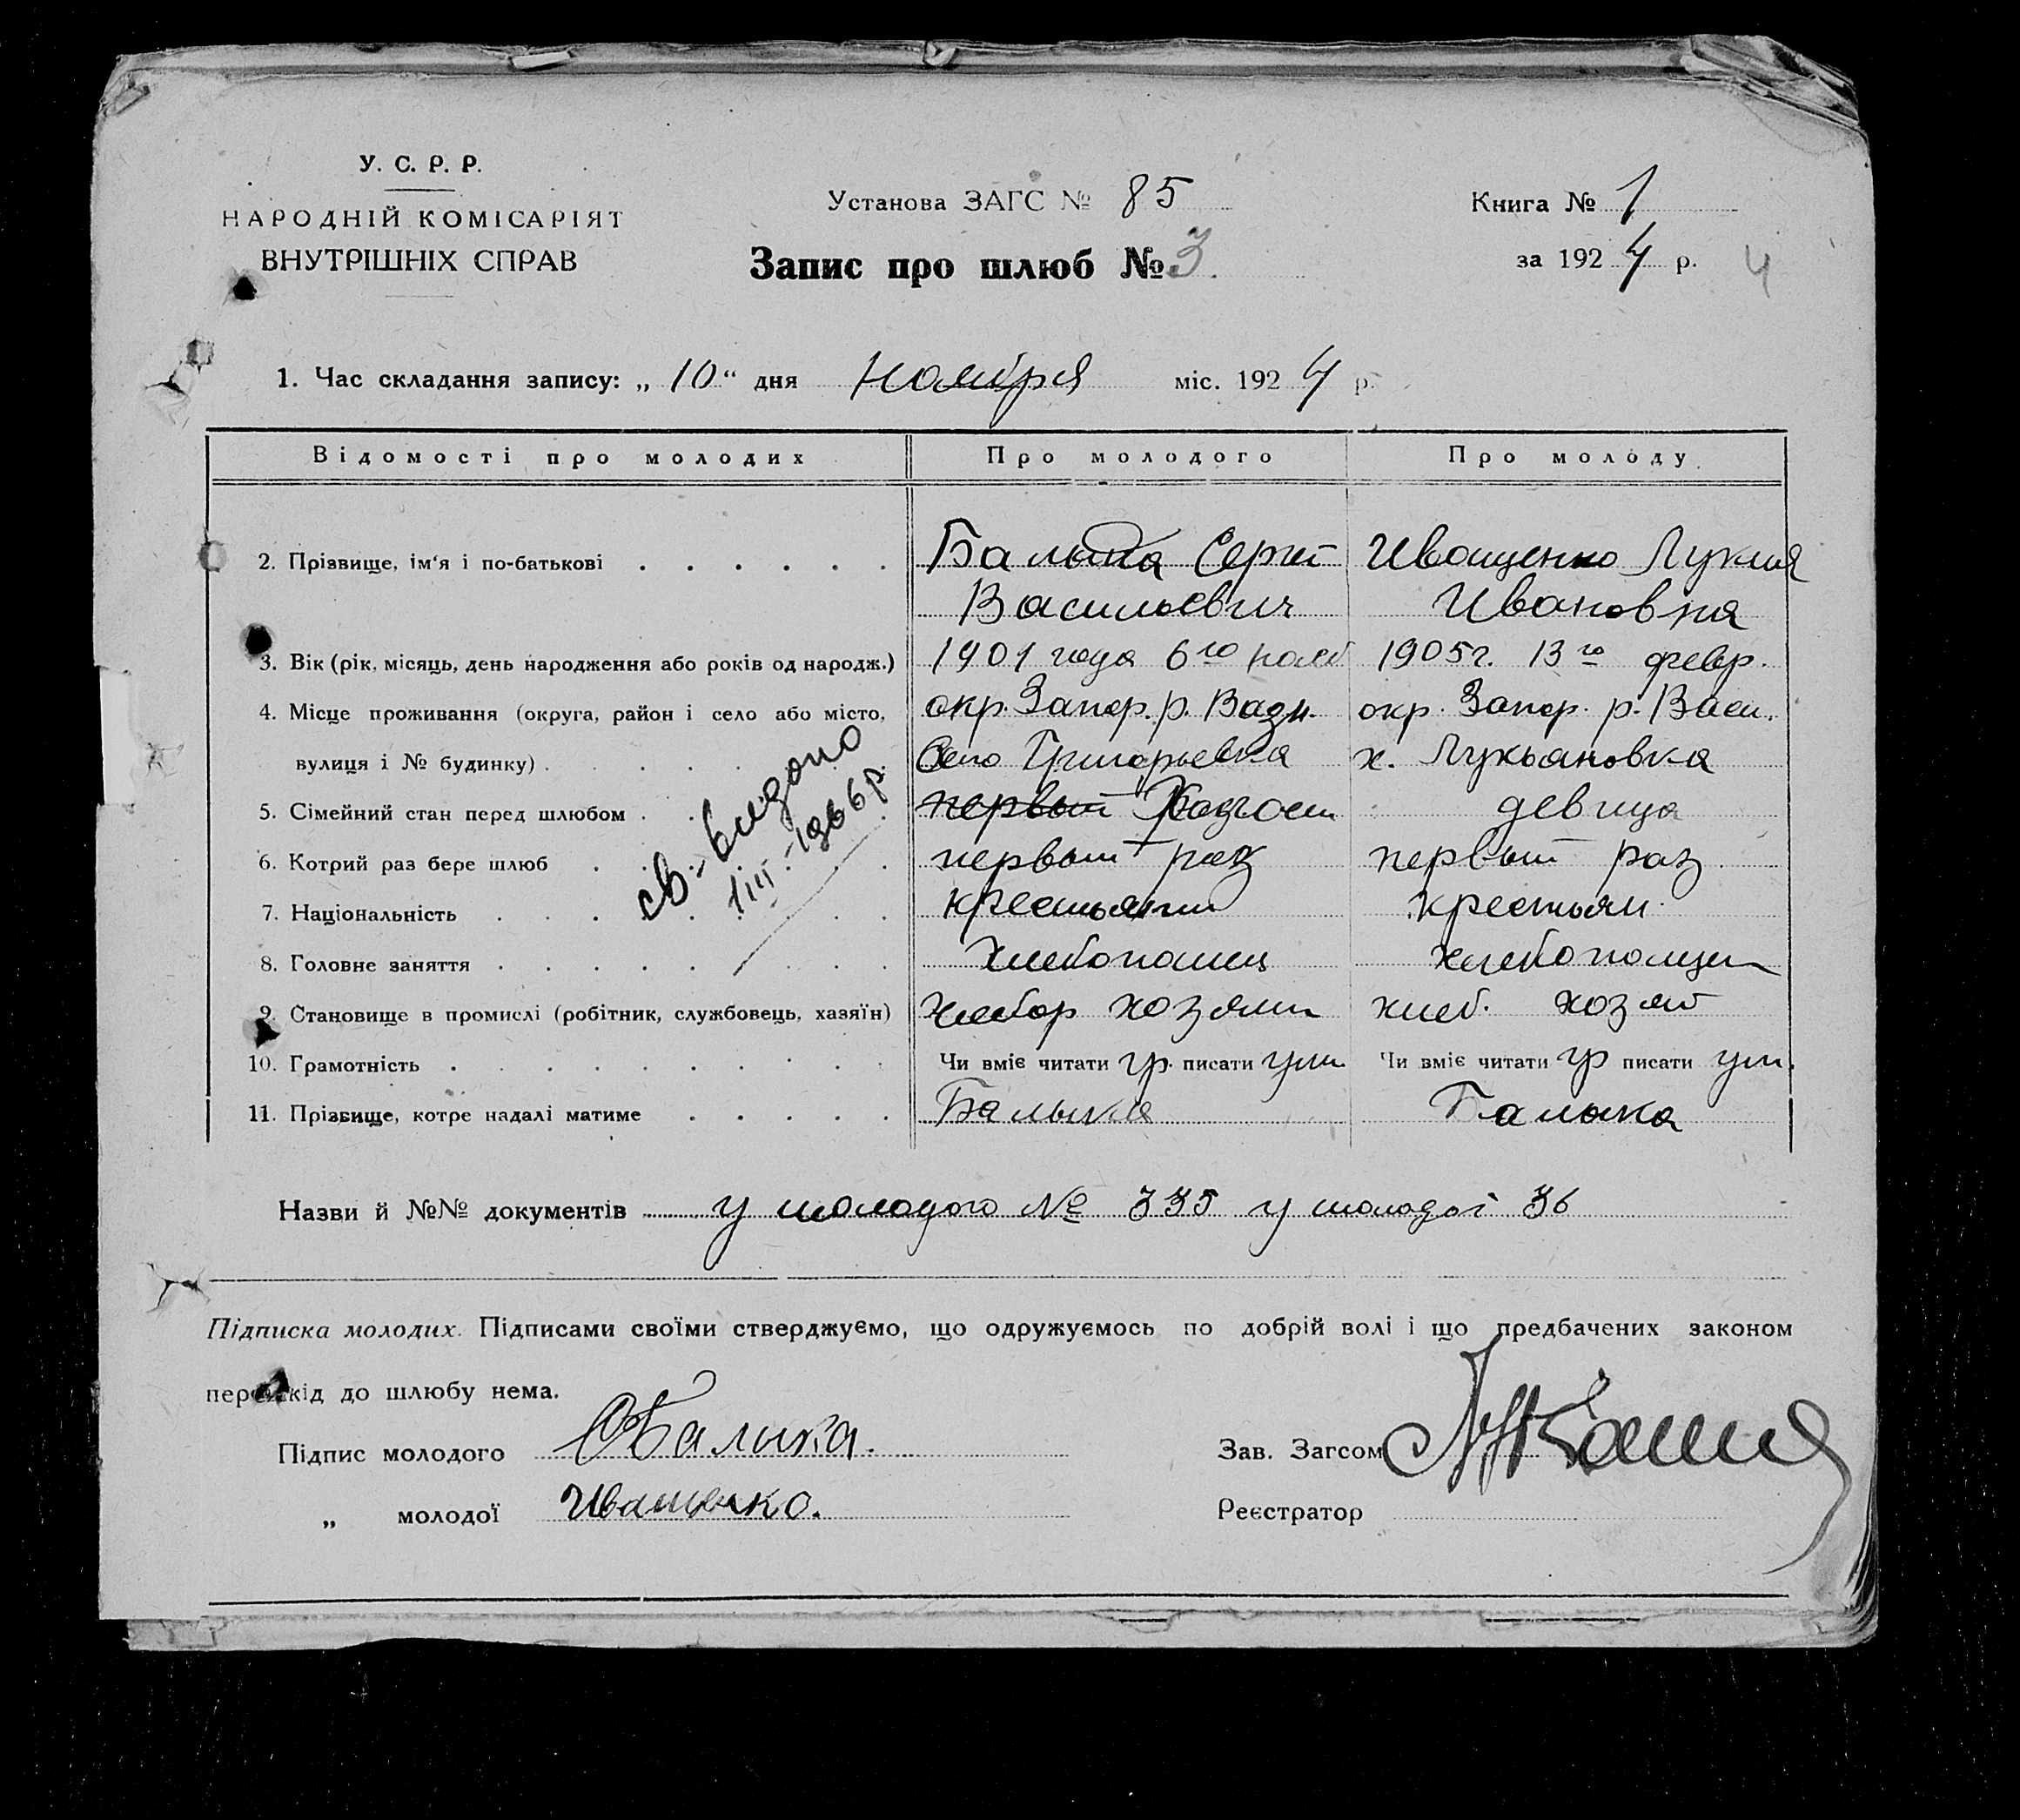 У. С. Р. Р.
НАРОДНІЙ КОМІСАРІЯТ
ВНУТРІШНІХ СПРАВ
Установа ЗАГС № 85
Запис про шлюб № 3.
Книга № 1
за 1924 р. 4
1. Час складання запису: „ 10 “ дня ноября міс. 1924 р.
Відомості про молодих Про молодого Про молоду
2. Прізвище, ім'я і по-батькові Балыка Сергей Иващенко Лукия
Васильевич Ивановна
3. Вік (рік, місяць, день народження або років од народж.) 1901 года 6го нояб 1905 г. 13го февр.
4. Місце проживання (округа, район і село або місто, окр. Запор. р. окр. Запор. р. Васи.
вулиця і № будинку) Село Григорьевка х. Лукьяновка
5. Сімейний стан перед шлюбом первый девица
6. Котрий раз бере шлюб первый раз первый раз
7. Національність крестьянин крестьян.
8. Головне заняття хлебопашец хлебопашец
9. Становище в промислі (робітник, службовець, хазяїн) хлебор хозяин хлеб. хозяй
10. Грамотність Чи вміє читати гр. писати ум. Чи вміє читати гр писати ум.
11. Прізвище, котре надалі матиме Балыка Балыка
св.-видано
1 III.-1966 р.
Назви й №№ документів у молодого № 335 у молодої 36
Підписка молодих. Підписами своїми стверджуємо, що одружуємось по добрій волі і що предбачених законом
перешкід до шлюбу нема.
Підпис молодого СБалыка.
„ молодої Иващенко.
Зав. Загсом
Реєстратор